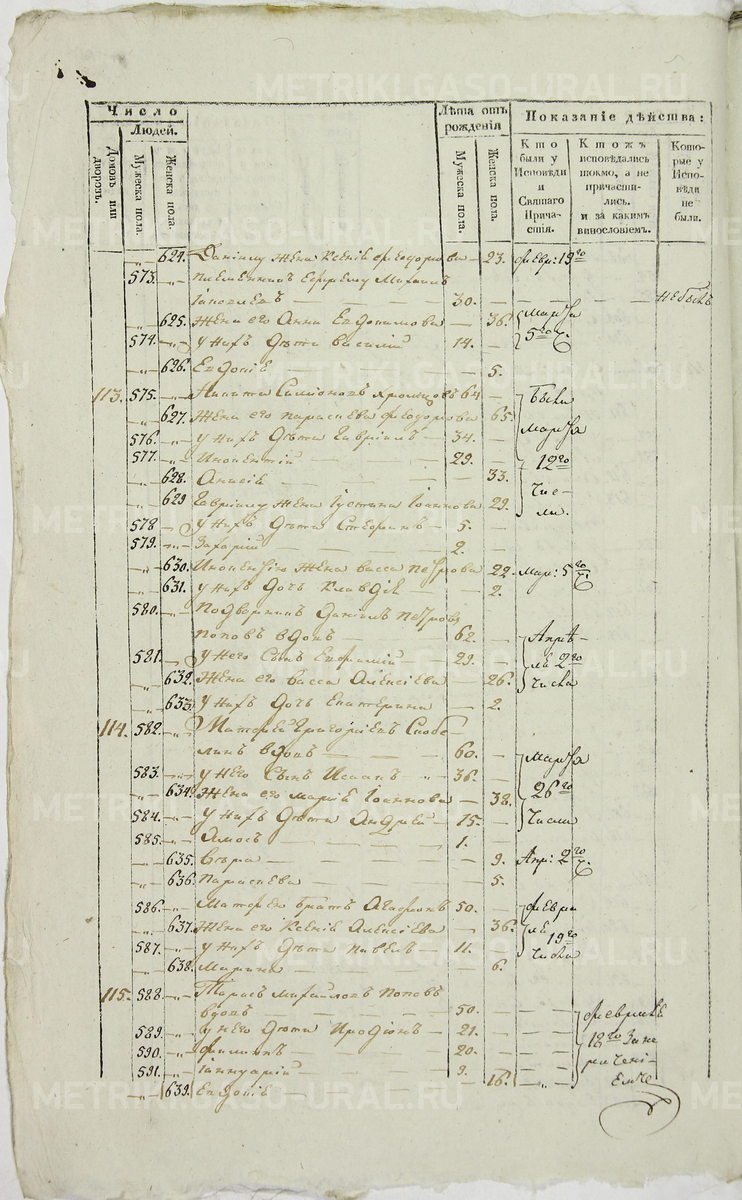 Число
Людей.
Домовъ или дворовъ.
Мужеска пола.
Женска пола.
Лѣта отъ рожденія
Мужеска пола.
Женска пола.
Показаніе дѣйства:
Кто были у Исповѣди и Святаго Причастія.
Ктожъ исповѣдались токмо, а не причастились. и за какимъ винословіемъ.
Которые у Исповѣди не были.
624. Даніилу жена Ксенія Ѳеодорова 23. Февр: 19го
573. Племянникъ Ефремъ Михаиловъ
30. не былъ
625. Жена его Анна Евдокимова 36. Марта
574. У нихъ дѣти Василій 14. 5го ч.
626. Евдокія 5.
113. 575. Никита Симіоновъ 64 Были
627. Жена его Параскева Ѳеодорова 65 Марта
576. У нихъ дѣти Гавріилъ 34. 12го
577. Инокентій 29. Чис-
628. Анисія 33. ла.
629 Гавріилу жена Іустина Іоаннова 29.
578 У нихъ дѣти Стефанъ 5.
579. Захарій 2.
630. Инокентію жена Васса Петрова 22. Мар: 5го ч.
631. У нихъ дочь Клавдія 2.
580. Подворникъ Даніилъ Петровъ
Поповъ вдовъ 62. Апрѣ-
581. У него сынъ Евфимій 29. ля 2го
632. Жена его Васса Алексіева 26. Числа
633. У нихъ дочь Екатерина 2.
114. 582. Матѳей Григоріевъ Скобе-
линъ вдовъ 60. Марта
583. У него сынъ Исаакъ 36. 26го
634. Жена его Марія Іоаннова 38. Числа
584. У нихъ дѣти Андрей 15.
585. Амосъ 1.
635. Вѣра 9. Апр: 2го ч.
636. Параскева 5.
586. Матѳею братъ Агафонъ 50. Февра
637. Жена его Ксенія Алексіева 36. ля 19го
587. У нихъ дѣти Павелъ 11. Числа
638. Марина 6.
115. 588. Тарасъ Михайловъ Поповъ
вдовъ 50. Февраля
589. У него дѣти Иродіонъ 21. 18го За не
590. Филиппъ 20.
591. Іаннуарій 9.
639. Евдокія 16.
METRIKI.GASO-URAL.RU